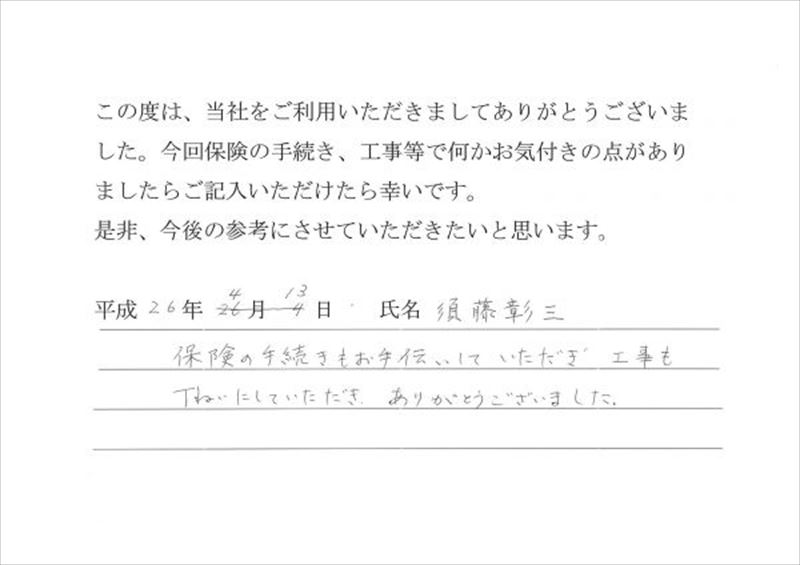 この度は、当社をご利用いただきましてありがとうございま
した。今回保険の手続き、工事等で何かお気付きの点があり
ましたらご記入いただけたら幸いです。
是非、今後の参考にさせていただきたいと思います。
4 13
平成 26年 26月 4日 氏名 須藤彰三
保険の手続きもお手伝いしていただき 工事も
丁ねいにしていただき ありがとうございました。